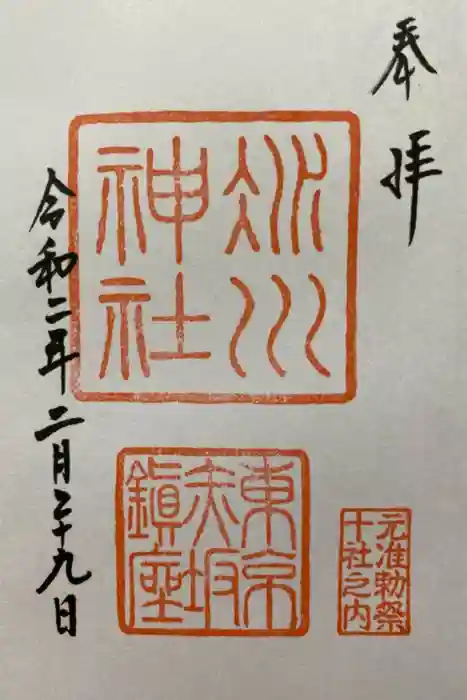 奉拝
氷川
神社
東京
赤坂
鎮座
元准勅祭
十社之内
令和二年二月二十九日